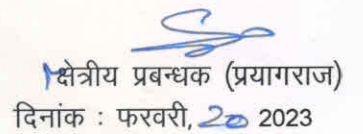 क्षेत्रीय प्रबन्धक (प्रयागराज)
दिनांक : फरवरी, 20 2023